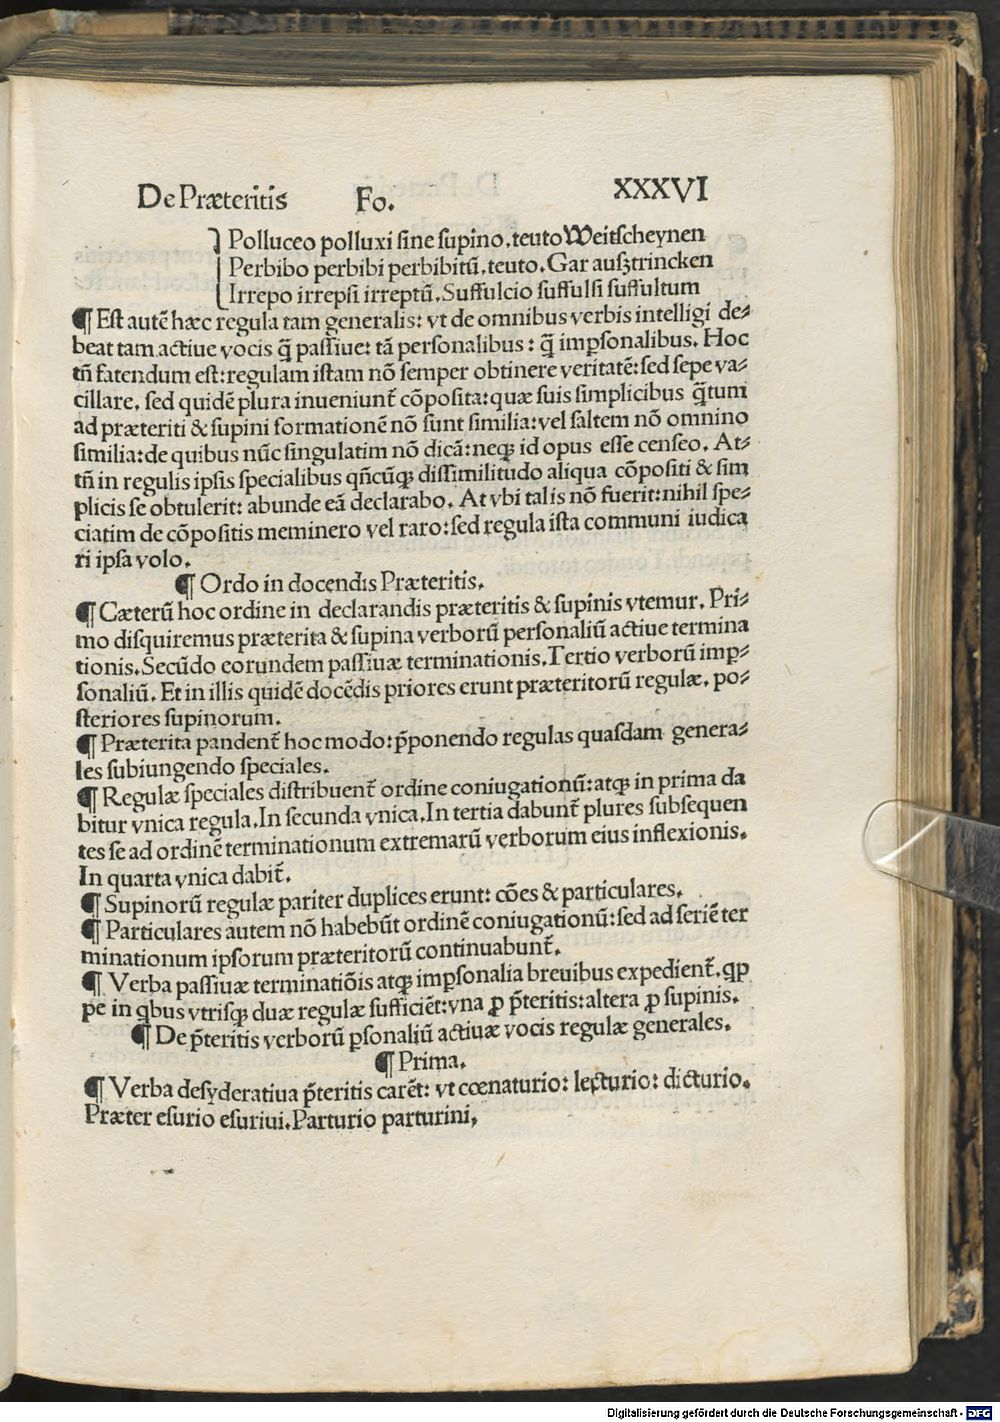 De Præteritis Fo. XXXVI
Polluceo polluxi ſine ſupino, teuto Weitſcheynen
Perbibo perbibi perbibitū, teuto. Gar auſztrincken
Irrepo irrepſi irreptū. Suffulcio ſuffulſi ſuffultum
¶ Eſt autē hæc regula tam generalis: vt de omnibus verbis intelligi de⸗
beat tam actiue vocis q̄̃ paſſiue: tā perſonalibus: q̄̃ imꝑſonalibus. Hoc
tn̄ fatendum eſt: regulam iſtam nō ſemper obtinere veritatē: ſed ſepe va⸗
cillare. ſed quidē plura inueniunt̃ cōpoſita: quæ ſuis ſimplicibus q̄̃tum
ad præteriti & ſupini formationē nō ſunt ſimilia: vel ſaltem nō omnino
ſimilia: de quibus nūc ſingulatim nō dicā: neqꝫ id opus eſſe cenſeo. At⸗
tn̄ in regulis ipſis ſpecialibus qn̄cūqꝫ diſſimilitudo aliqua cōpoſiti & ſim
plicis ſe obtulerit: abunde eā declarabo. At vbi talis nō fuerit: nihil ſpe⸗
ciatim de cōpoſitis meminero vel raro: ſed regula iſta communi iudica
ri ipſa volo.
¶ Ordo in docendis Præteritis.
¶ Cæterū hoc ordine in declarandis præteritis & ſupinis vtemur. Pri⸗
mo diſquiremus præterita & ſupina verborū perſonaliū actiue termina
tionis. Secūdo eorundem paſſiuæ terminationis. Tertio verborū imꝑ⸗
ſonaliū. Et in illis quidē docēdis priores erunt præteritorū regulæ. po⸗
ſteriores ſupinorum.
¶ Præterita pandent̃ hoc modo: p̄ponendo regulas quaſdam genera⸗
les ſubiungendo ſpeciales.
¶ Regulæ ſpeciales diſtribuent̃ ordine coniugationū: atqꝫ in prima da
bitur vnica regula. In ſecunda vnica. In tertia dabunt̃ plures ſubſequen
tes ſe ad ordinē terminationum extremarū verborum eius inflexionis.
In quarta vnica dabit̃.
¶ Supinorū regulæ pariter duplices erunt: cōes & particulares.
¶ Particulares autem nō habebūt ordinē coniugationū: ſed ad ſeriē ter
minationum ipſorum præteritorū continuabunt̃.
¶ Verba paſſiuæ terminatiōis atqꝫ imꝑſonalia breuibus expedient̃. qꝑ
pe in qbus vtriſqꝫ duæ regulæ ſufficiēt: vna ꝓ p̄teritis: altera ꝓ ſupinis.
¶ De p̄teritis verborū ꝑſonaliū actiuæ vocis regulæ generales.
¶ Prima.
¶ Verba deſyderatiua p̄teritis carēt: vt cœnaturio: lecturio: dicturio.
Præter eſurio eſuriui. Parturio parturini,
Digitalisierung gefördert durch die Deutsche Forschungsgemeinschaft - DFG